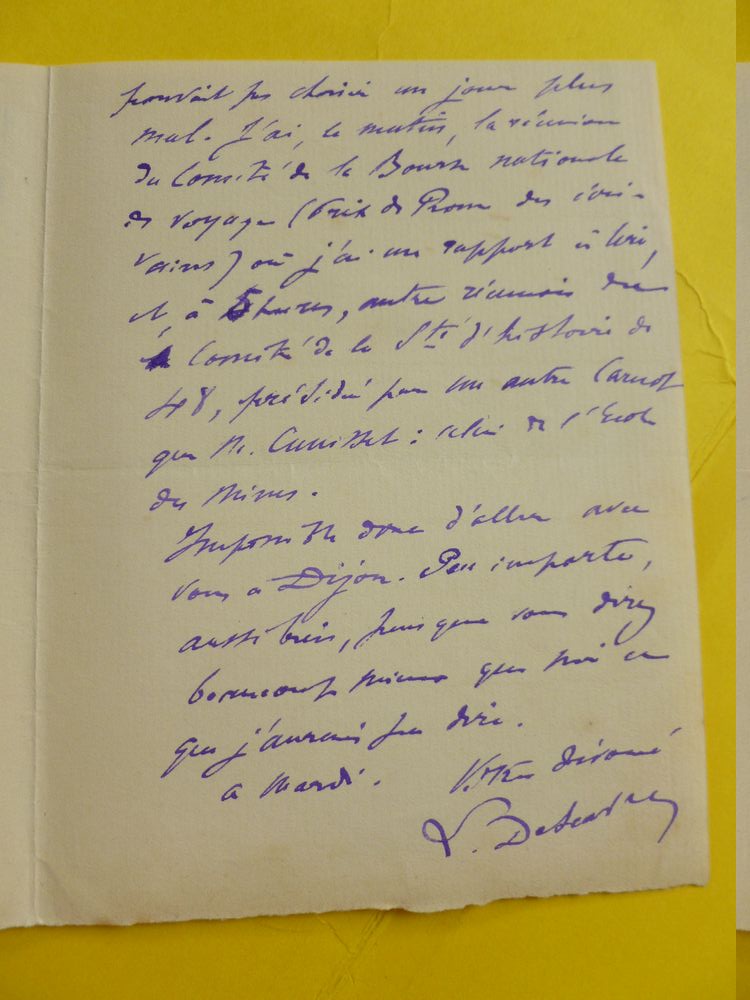 pouvait pas choisir un jour plus
mal. J'ai, ce matin, la réunion
du Comité de la Bourse nationale
de voyage (Prix de Rome des écri-
vains) où j'ai un rapport à lire,
et, à 5 heures, autre réunion du
Comité de la Sté d'histoire de
48, présidé par un autre Carnot
que M. Cunisset : celui de l'Ecole
des Mines.
Impossible donc d'aller avec
vous à Dijon. Peu importe,
aussi bien, puisque vous direz
beaucoup mieux que moi ce
que j'aurais pu dire.
a mardi. Votre dévoué
L. Descaves